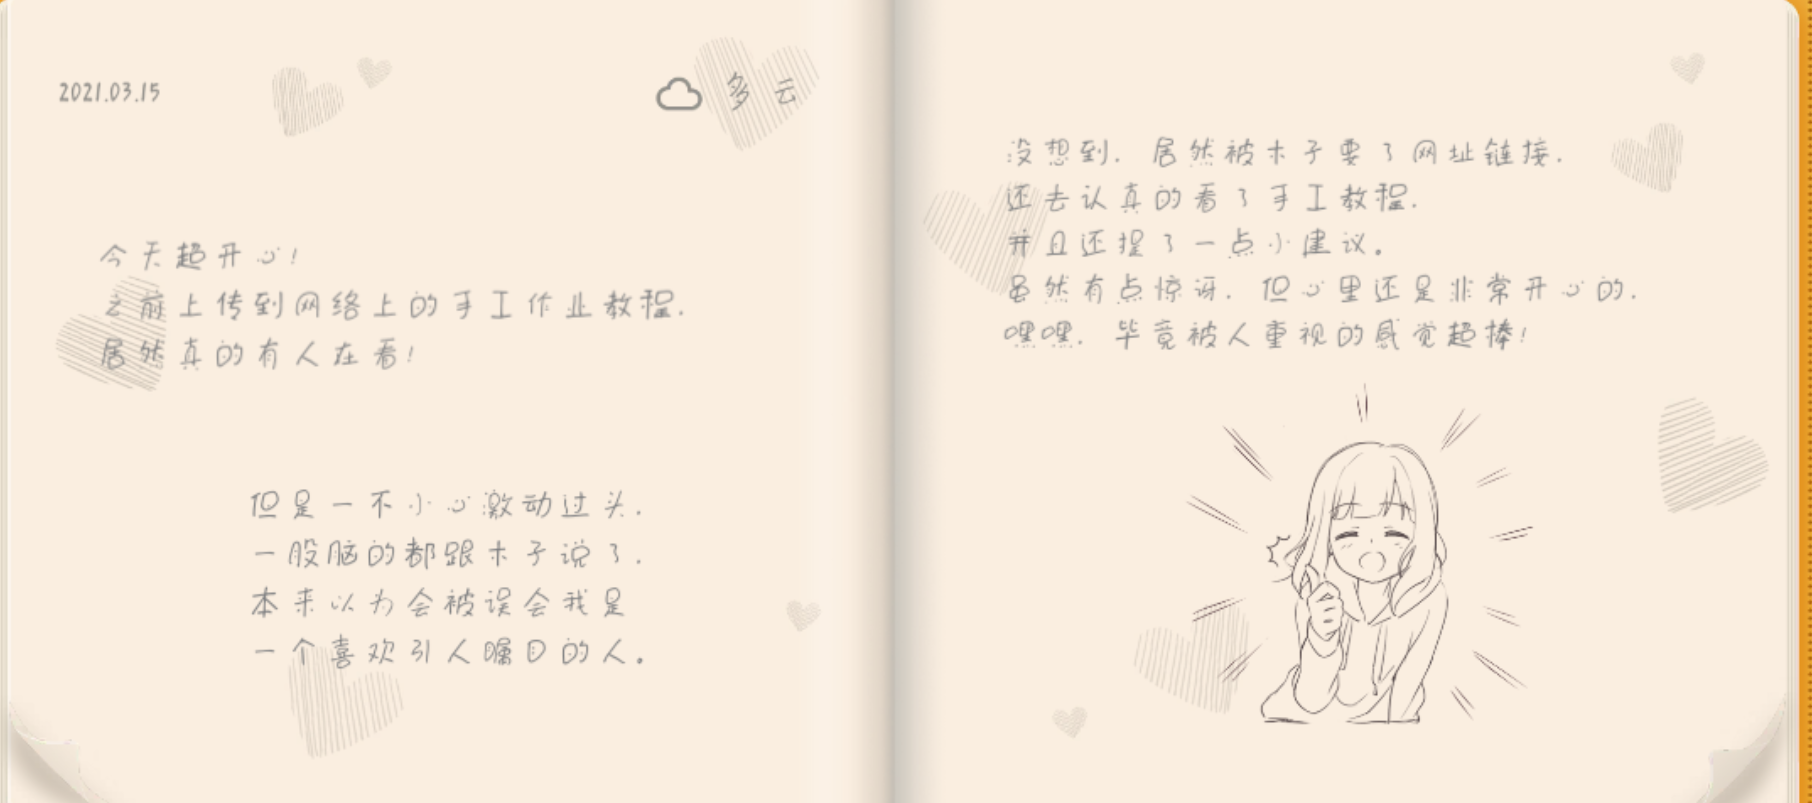 2021.03.15
多云
今天超开心!
之前上传到网络上的手工作业教程.
居然真的有人在看!
但是一不小心激动过头.
一股脑的都跟木子说了.
本来以为会被误会我是
一个喜欢引人瞩目的人。
没想到. 居然被木子要了网址链接.
还去认真的看了手工教程.
并且还提了一点小建议。
虽然有点惊讶. 但心里还是非常开心的.
嘿嘿. 毕竟被人重视的感觉超棒!